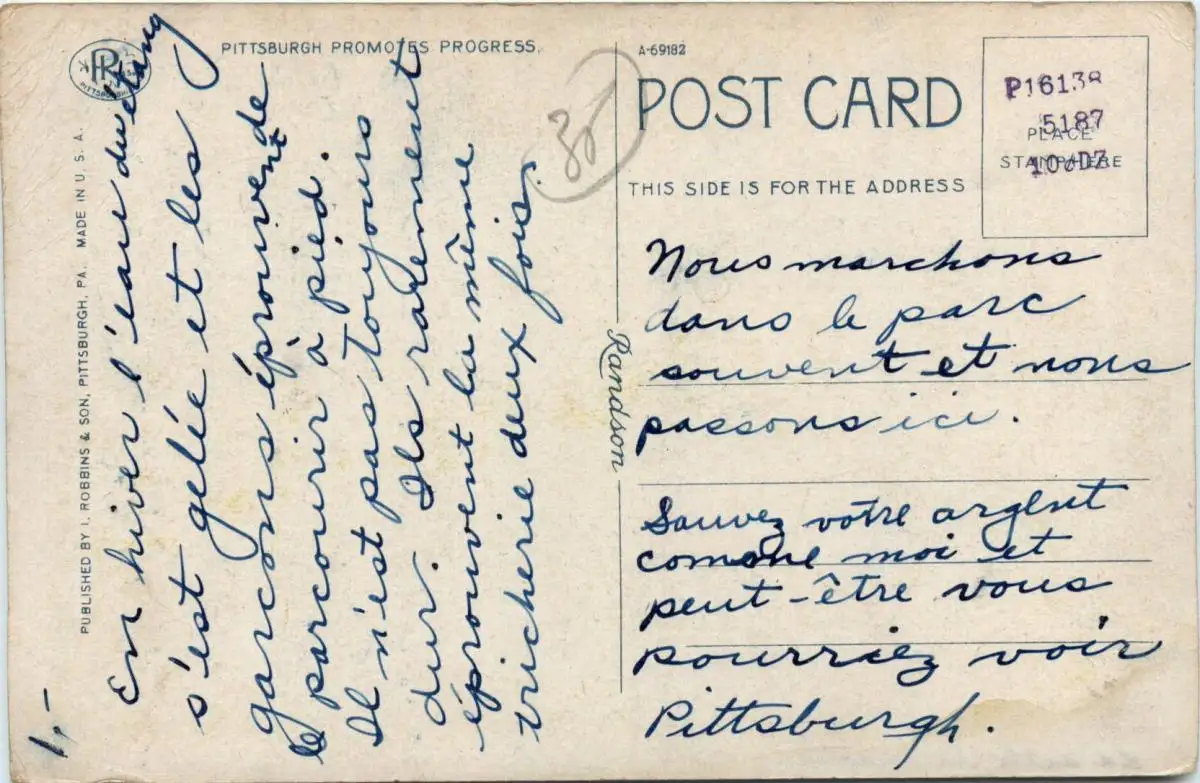 PITTSBURGH PROMOTES PROGRESS.
PR
PITTSBURGH
PUBLISHED BY I. ROBBINS & SON, PITTSBURGH, PA. MADE IN U. S. A.
En hiver l'eau du étang
s'est gelée et les
garçons éprouvent de
le parcourir à pied.
Il n'est pas toujours
dur. Ils rarement
éprouvent la même
tricherie deux fois.
1,-
30
A-69182
POST CARD
THIS SIDE IS FOR THE ADDRESS
PLACE
STAMP HERE
P16138
5187
Randson
Nous marchons
dans le parc
souvent et nous
passons ici.
Sauvez votre argent
comme moi et
peut-être vous
pourriez voir
Pittsburgh.